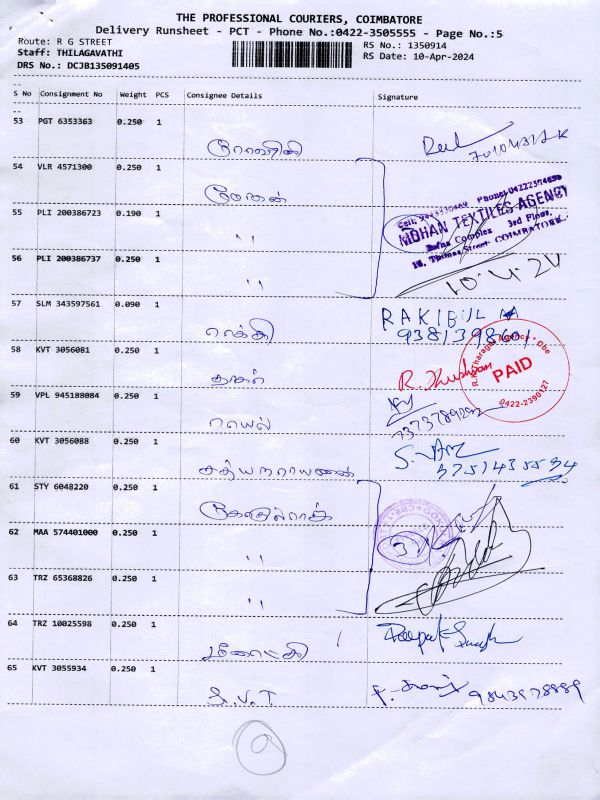 THE PROFESSIONAL COURIERS, COIMBATORE
Delivery Runsheet - PCT - Phone No.:0422-3505555 - Page No.:5
Route: R G STREET
RS No.: 1350914
Staff: THILAGAVATHI
RS Date: 10-Apr-2024
DRS No.: DCJB135091405
S No Consignment No Weight PCS Consignee Details Signature
53 PGT 6353363 0.250 1
54 VLR 4571300 0.250 1
மோகன்
55 PLI 200386723 0.190 1
" MOHAN TEXTILES AGENCY
3rd Floor,
COIMBATORE
56 PLI 200386737 0.250 1
" 10.4.24
57 SLM 343597561 0.090 1
ராக்கி RAKIBUL
9381398601
58 KVT 3056081 0.250 1
PAID
0422-2390127
59 VPL 945188084 0.250 1
ராயல்
60 KVT 3056088 0.250 1
சத்யநாராயணன்
61 STY 6048220 0.250 1
கோகுல்ராஜ்
62 MAA 574401000 0.250 1
"
63 TRZ 65368826 0.250 1
"
64 TRZ 10025598 0.250 1
Deepak Singh
65 KVT 3055934 0.250 1
S.V.T 9843978889
9